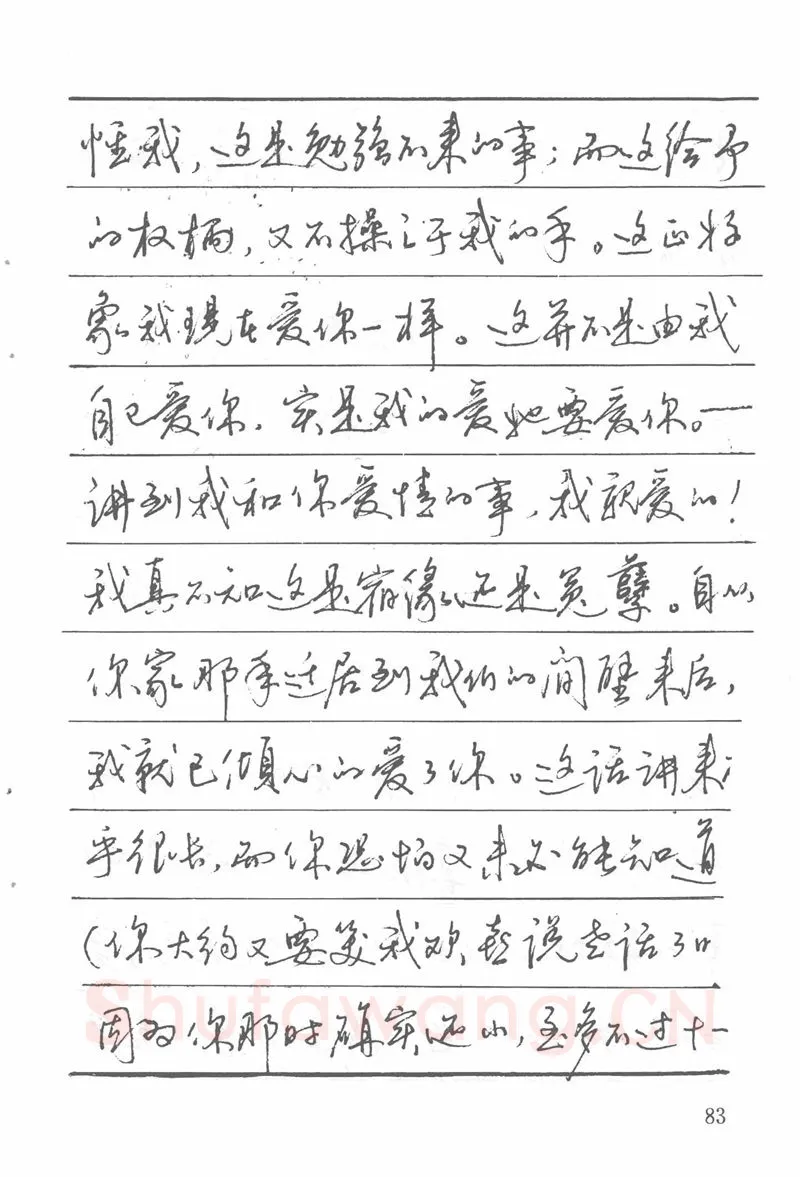 怪我，这是勉强不来的事；而这给予
的权柄，又不操之于我的手。这正好
象我现在爱你一样。这并不是由我
自己爱你，实是我的爱她要爱你。一
讲到我和你爱情的事，我亲爱的！
我真不知这是宿缘，还是冤孽。自从
你家那年迁居到我们的间壁来后，
我就已倾心的爱了你。这话讲来
乎很长，而你恐怕又未必能知道
（你大约又要笑我欢喜说老话了
因为你那时确实还小，至多不过十一
Shufawang.CN
83